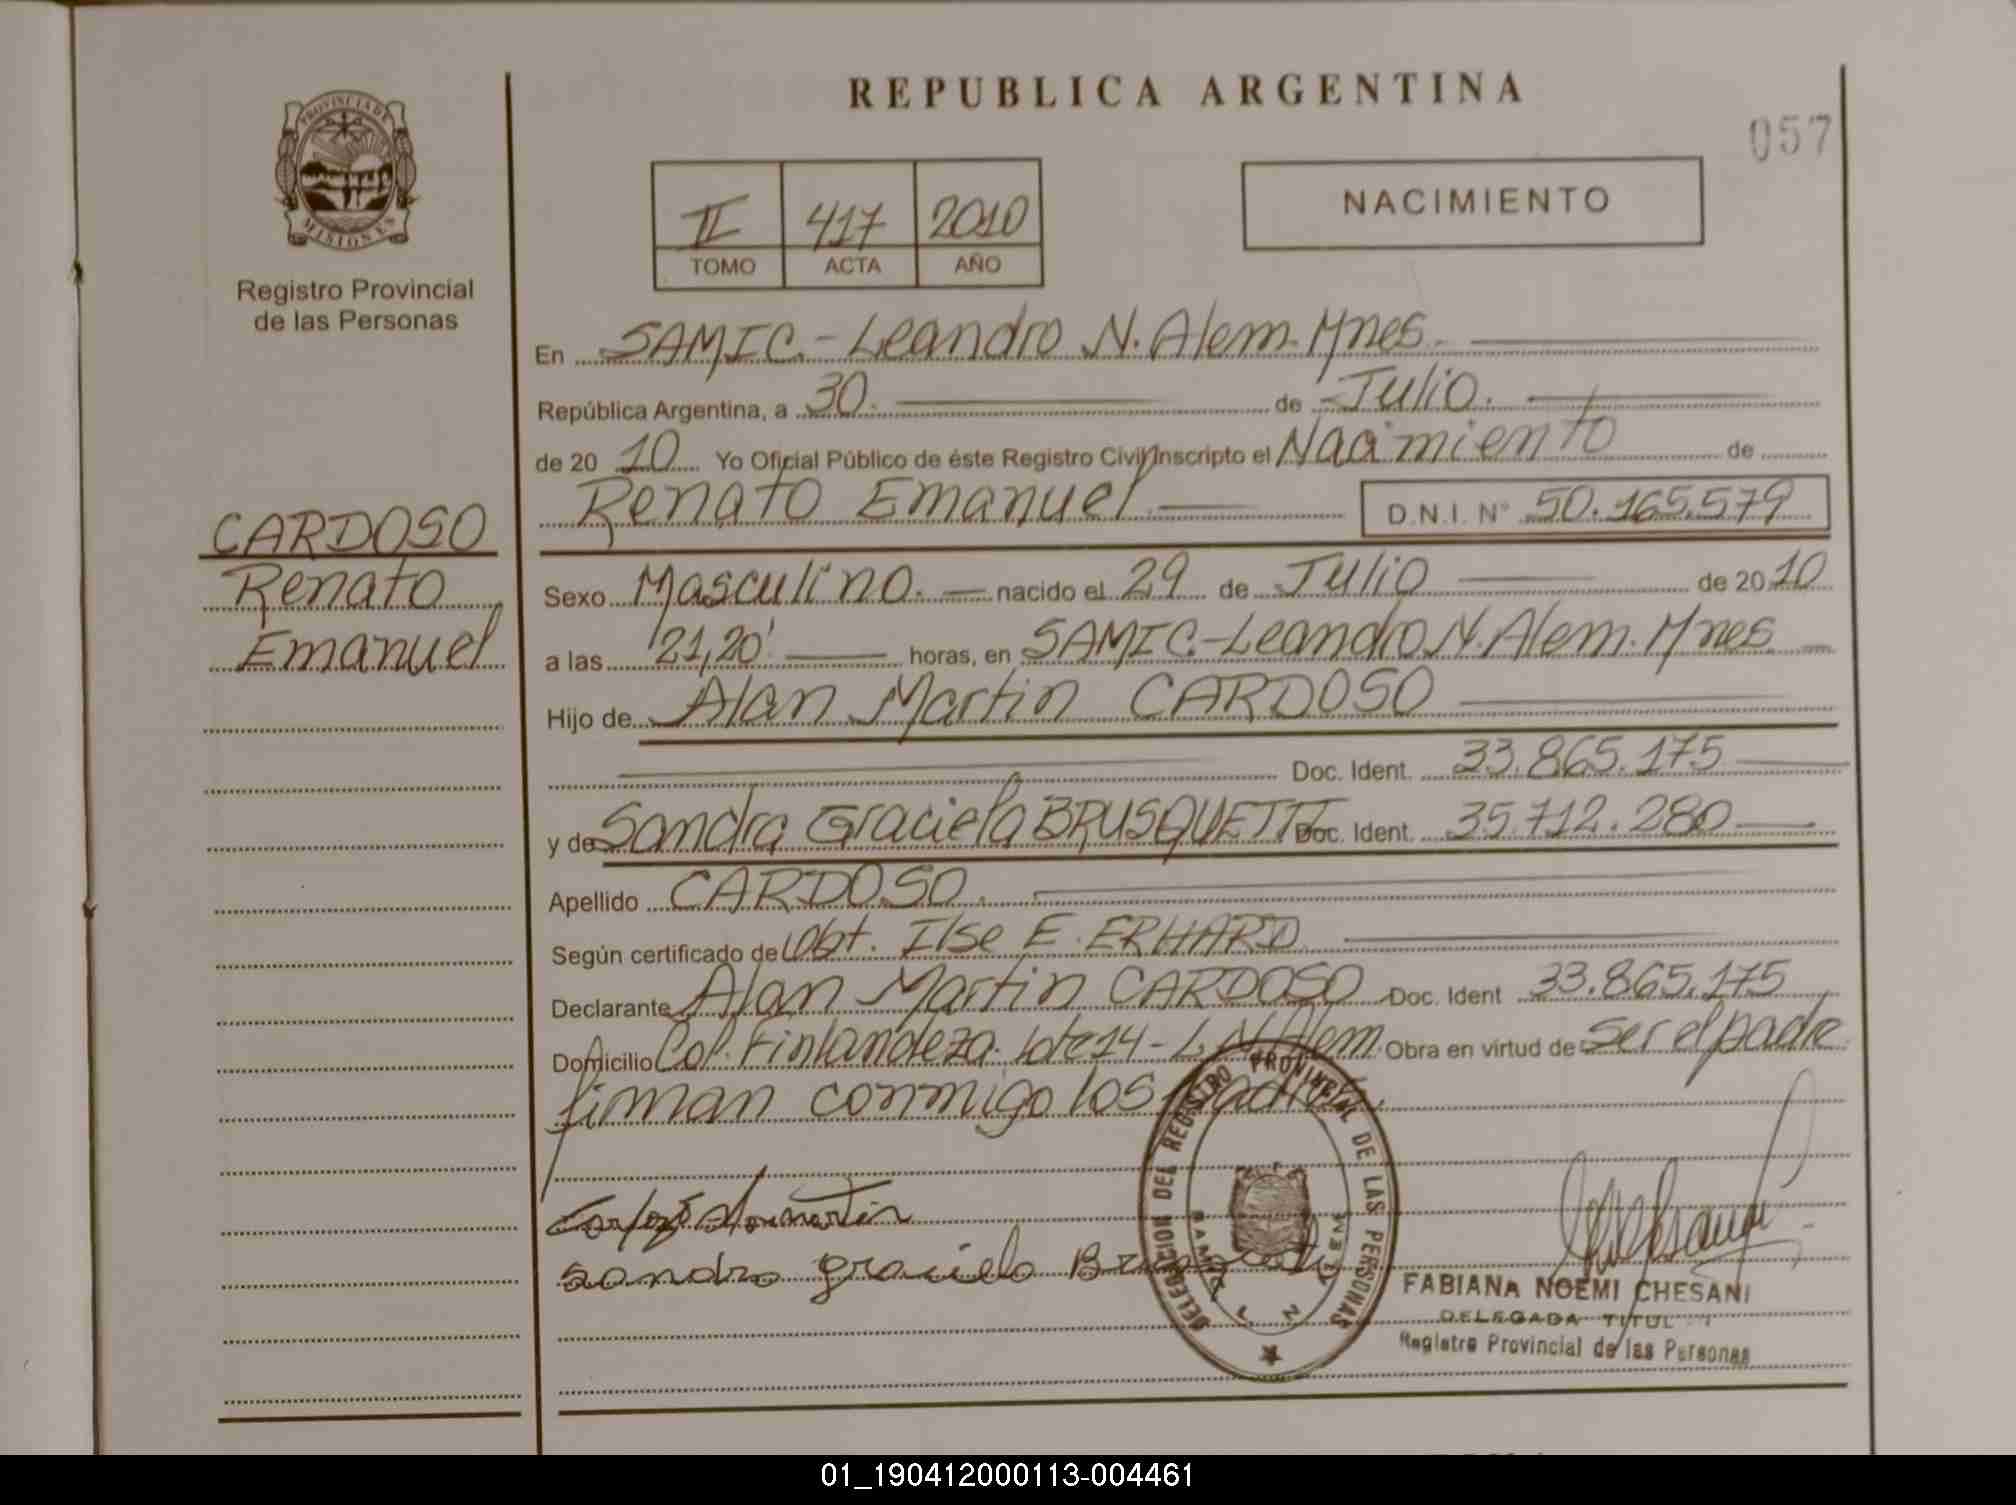 REPUBLICA ARGENTINA
057
PROVINCIA DE
MISIONES
Registro Provincial
de las Personas
II 417 2010
TOMO ACTA AÑO
NACIMIENTO
En SAMIC.- Leandro N. Alem. Mnes.
República Argentina, a 30. de Julio.
de 20 10 Yo Oficial Público de éste Registro Civil Inscripto el Nacimiento de
Renato Emanuel D.N.I. N° 50.165.579
CARDOSO
Renato
Emanuel
Sexo Masculino. nacido el 29 de Julio de 20 10
a las 21,20' horas, en SAMIC.-Leandro N. Alem. Mnes
Hijo de Alan Martin CARDOSO
Doc. Ident. 33.865.175
y de Sandra Graciela BRUSQUETTI Doc. Ident. 35.712.280
Apellido CARDOSO.
Según certificado de Obt. Ilse E. ERHARD
Declarante Alan Martin CARDOSO Doc. Ident 33.865.175
Domicilio Col. Finlandeza. lote 14 - L. N. Alem. Obra en virtud de Ser el padre
firman conmigo los padres.
DELEGACION DEL REGISTRO PROVINCIAL DE LAS PERSONAS
sandra graciela
FABIANA NOEMI CHESANI
DELEGADA TITUL
Registro Provincial de las Personas
01_190412000113-004461